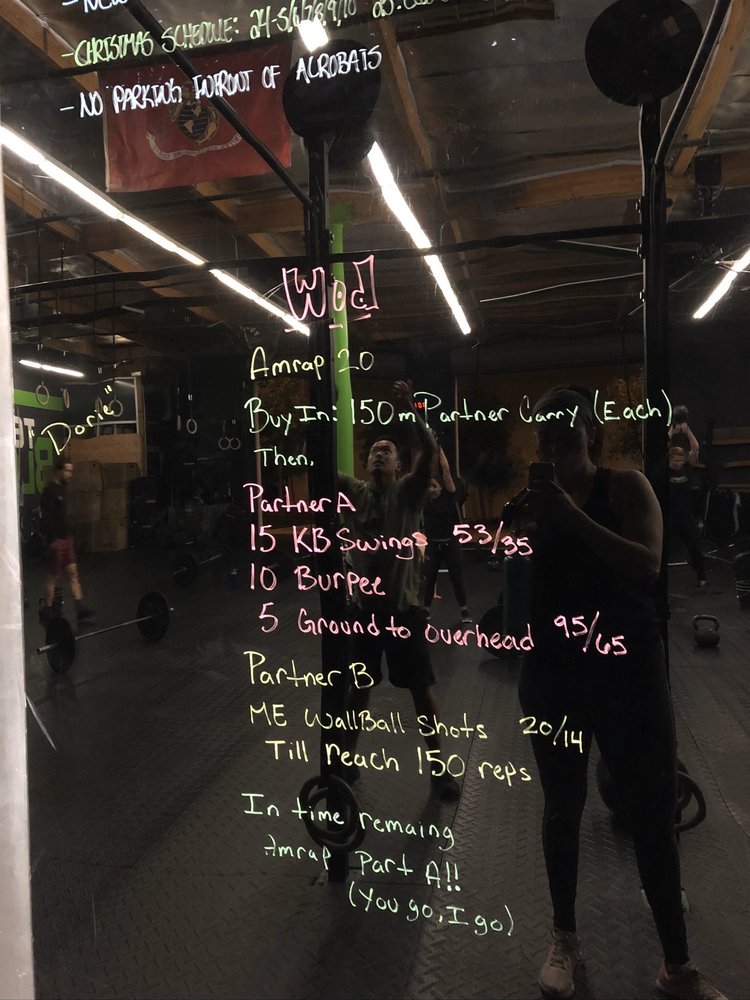 - CHRISTMAS SCHEDULE: 24-5/6/7/8/9/10
- NO PARKING INFROUT OF ACROBATS
WOD
"Dorie"
Amrap 20
Buy In: 150m Partner Carry (Each)
Then,
Partner A
15 KB Swings 53/35
10 Burpee
5 Ground to overhead 95/65
Partner B
ME WallBall Shots 20/14
Till reach 150 reps
In time remaing
Amrap Part A!!
(You go, I go)